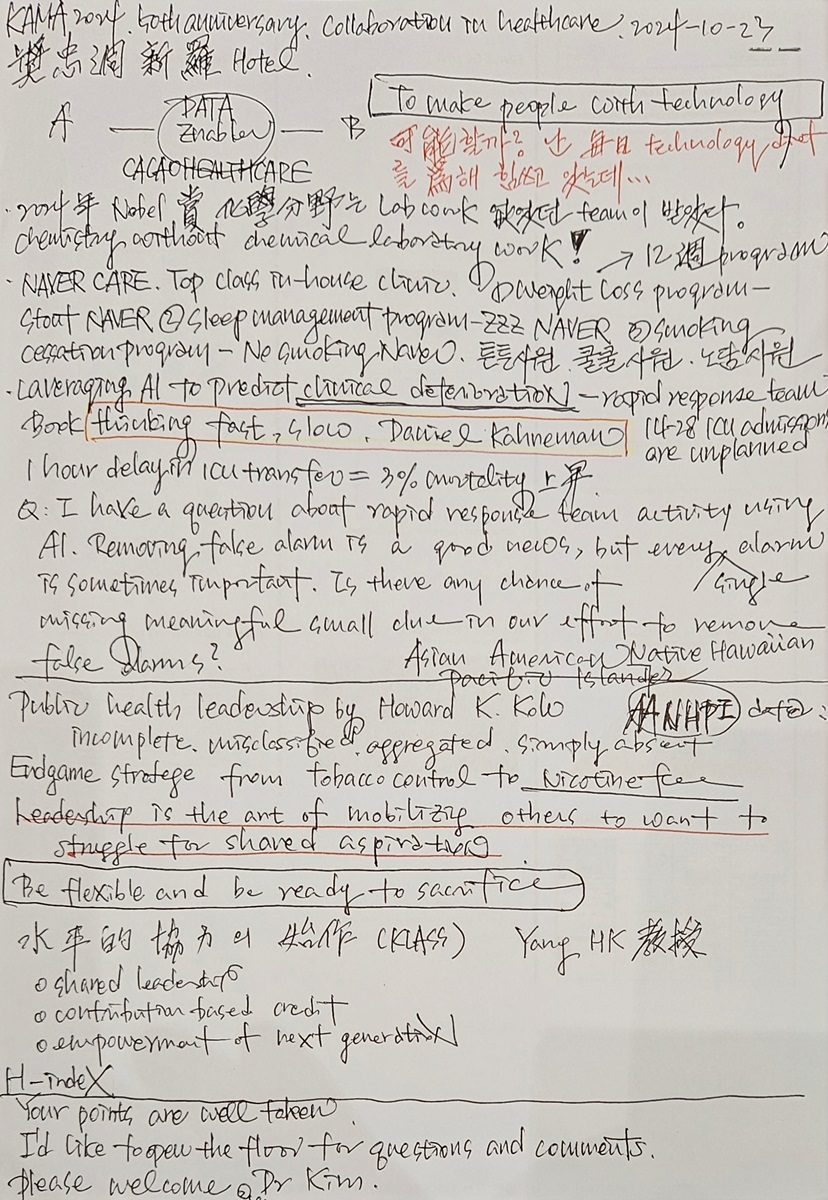 KAMA 2024. 50th anniversary. Collaboration in healthcare. 2024-10-23
奬忠洞 新羅 Hotel.
A — DATA Enabler — B
CACAO HEALTHCARE
To make people with technology
可能할까? 난 每日 technology
를 爲해 힘쓰고 있는데...
· 2024年 Nobel 賞 化學分野는 Lab work 없었던 team이 받았다.
chemistry without chemical laboratory work!
→ 12週 program
· NAVER CARE. Top class in-house clinic. ① Weight Loss program -
stout NAVER ② Sleep management program - ZZZ NAVER ③ smoking
cessation program - No smoking Naver. 튼튼사원. 쿨쿨사원. 노담사원
· Laveraging AI to predict clinical deterioration - rapid response team
Book thinking fast, slow. Daniel Kahneman
14-28 ICU admission
are unplanned
1 hour delay in ICU transfer = 3% mortality 上昇
Q: I have a question about rapid response team activity using
AI. Removing false alarm is a good news, but every single alarm
is sometimes important. Is there any chance of
missing meaningful small clue in our effort to remove
false alarms?
Asian American Native Hawaiian
Pacific Islander
Public health leadership by Howard K. Koh
AANHPI data:
incomplete. misclassified. aggregated. simply absent
Endgame stratege from tobacco control to Nicotine free
Leadership is the art of mobilizig others to want to
struggle for shared aspiration
Be flexible and be ready to sacrifice
水平的 協力의 始作 (KLASS) Yang HK 敎授
o shared leadership
o contribution based credit
o empowerment of next generation
H-index
Your points are well taken.
I'd like to open the floor for questions and comments.
Please welcome Dr Kim.